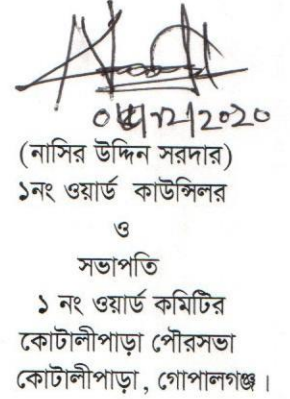 /12/2020
(নাসির উদ্দিন সরদার)
১নং ওয়ার্ড কাউন্সিলর
ও
সভাপতি
১ নং ওয়ার্ড কমিটির
কোটালীপাড়া পৌরসভা
কোটালীপাড়া, গোপালগঞ্জ।